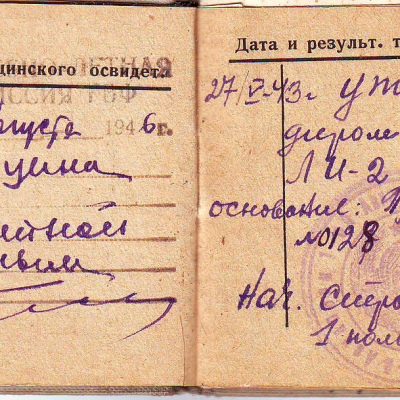 ЛЕТНАЯ
цинского освидет.
ССИЯ ГВФ
августа 1946 г.
цина
летной
ным
Дата и результ. т
27/V-43г. ут
диром
ЛИ-2
основание: П
№0128
Нач. Стро
1 пол